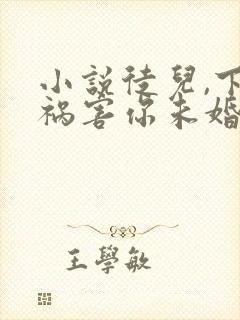 小說徒兒,下
禍害你未婚
王學敏